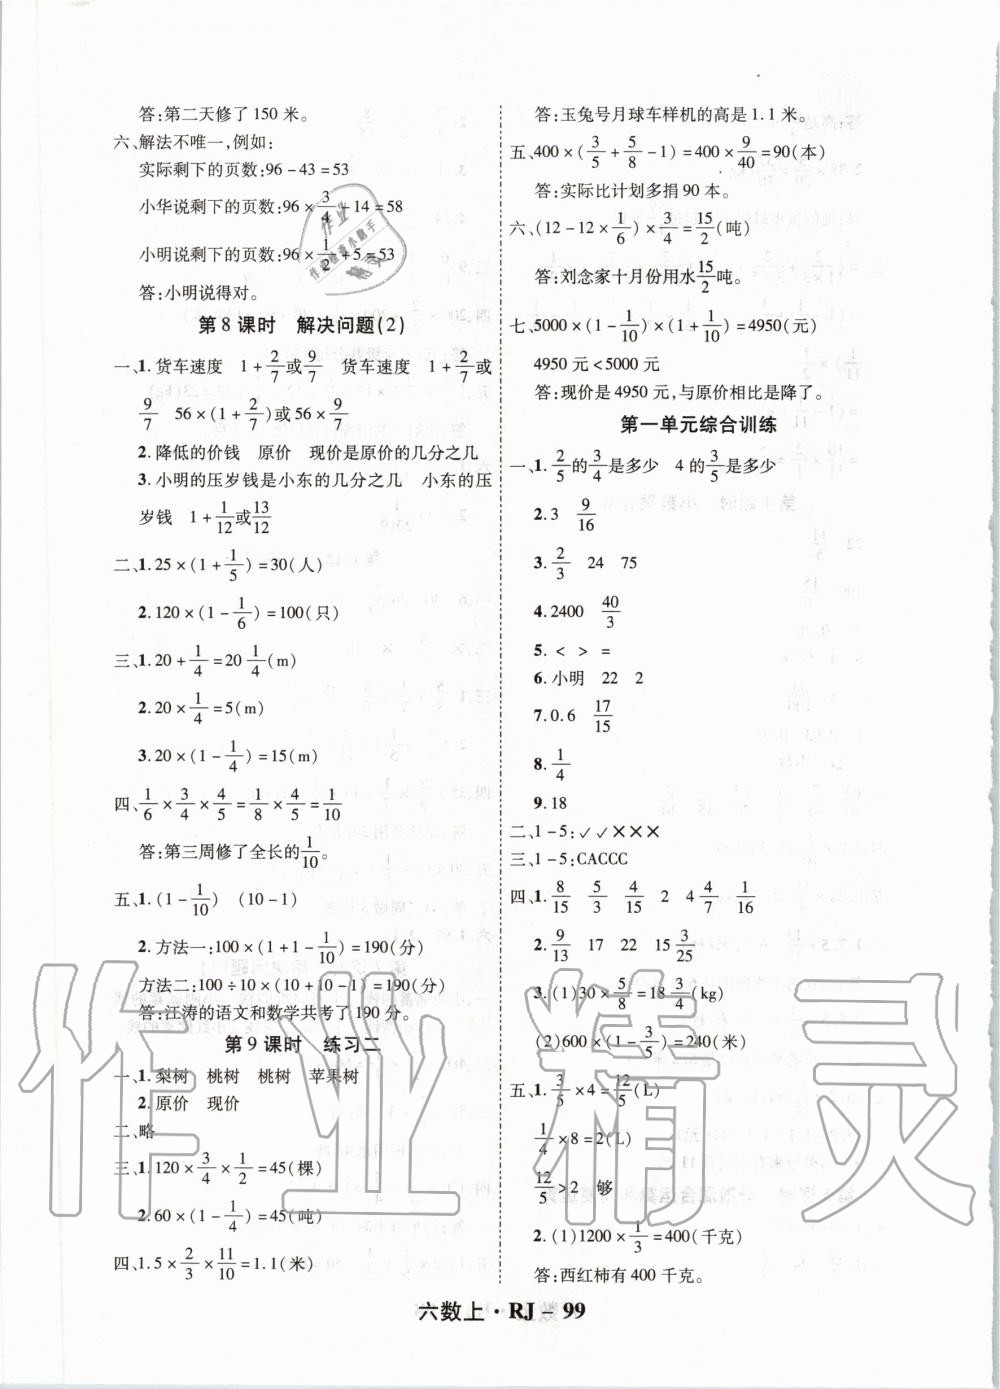 答:第二天修了 150 米。
六、解法不唯一,例如:
实际剩下的页数:96 - 43 = 53
小华说剩下的页数:96 × 3/4 - 14 = 58
小明说剩下的页数:96 × 1/2 + 5 = 53
答:小明说得对。
第 8 课时 解决问题(2)
一、1. 货车速度 1 + 2/7 或 9/7 货车速度 1 + 2/7 或
9/7 56 × (1 + 2/7) 或 56 × 9/7
2. 降低的价钱 原价 现价是原价的几分之几
3. 小明的压岁钱是小东的几分之几 小东的压
岁钱 1 + 1/12 或 13/12
二、1. 25 × (1 + 1/5) = 30(人)
2. 120 × (1 - 1/6) = 100(只)
三、1. 20 + 1/4 = 20 1/4 (m)
2. 20 × 1/4 = 5(m)
3. 20 × (1 - 1/4) = 15(m)
四、1/6 × 3/4 × 4/5 = 1/8 × 4/5 = 1/10
答:第三周修了全长的 1/10。
五、1. (1 - 1/10) (10 - 1)
2. 方法一:100 × (1 + 1 - 1/10) = 190(分)
方法二:100 ÷ 10 × (10 + 10 - 1) = 190(分)
答:汪涛的语文和数学共考了 190 分。
第 9 课时 练习二
一、1. 梨树 桃树 桃树 苹果树
2. 原价 现价
二、略
三、1. 120 × 3/4 × 1/2 = 45(棵)
2. 60 × (1 - 1/4) = 45(吨)
四、1.5 × 2/3 × 11/10 = 1.1(米)
答:玉兔号月球车样机的高是 1.1 米。
五、400 × (3/5 + 5/8 - 1) = 400 × 9/40 = 90(本)
答:实际比计划多捐 90 本。
六、(12 - 12 × 1/6) × 3/4 = 15/2 (吨)
答:刘念家十月份用水 15/2 吨。
七、5000 × (1 - 1/10) × (1 + 1/10) = 4950(元)
4950 元 < 5000 元
答:现价是 4950 元,与原价相比是降了。
第一单元综合训练
一、1. 2/5 的 3/4 是多少 4 的 3/5 是多少
2. 3 9/16
3. 2/3 24 75
4. 2400 40/3
5. < > =
6. 小明 22 2
7. 0.6 17/15
8. 1/4
9. 18
二、1-5: ✓✓×××
三、1-5: CACCC
四、1. 8/15 5/3 4/15 2 4 4/7 1/16
2. 9/13 17 22 15 3/25
3. (1)30 × 5/8 = 18 3/4 (kg)
(2)600 × (1 - 3/5) = 240(米)
五、1. 3/5 × 4 = 12/5 (L)
1/4 × 8 = 2(L)
12/5 > 2 够
2. (1)1200 × 1/3 = 400(千克)
答:西红柿有 400 千克。
六数上·RJ - 99
作业精灵